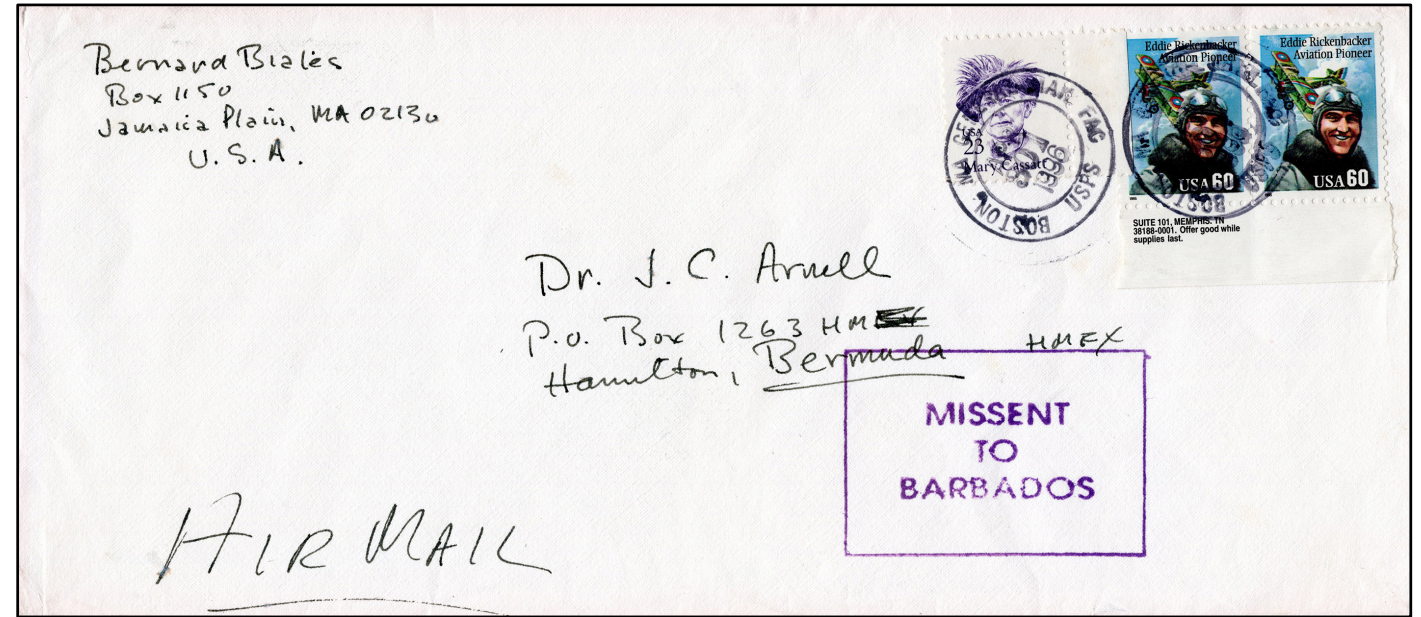 Bernard Biales
Box 1150
Jamaica Plain, MA 02130
U.S.A.
USA
23
Mary Cassatt
Eddie Rickenbacker
Aviation Pioneer
USA 60
Eddie Rickenbacker
Aviation Pioneer
USA 60
BOSTON MA USPS
1995
BOSTON USPS
SUITE 101, MEMPHIS. TN
38188-0001. Offer good while
supplies last.
Dr. J. C. Arnell
P.O. Box 1263 HM HMEX
Hamilton, Bermuda
MISSENT
TO
BARBADOS
AIR MAIL